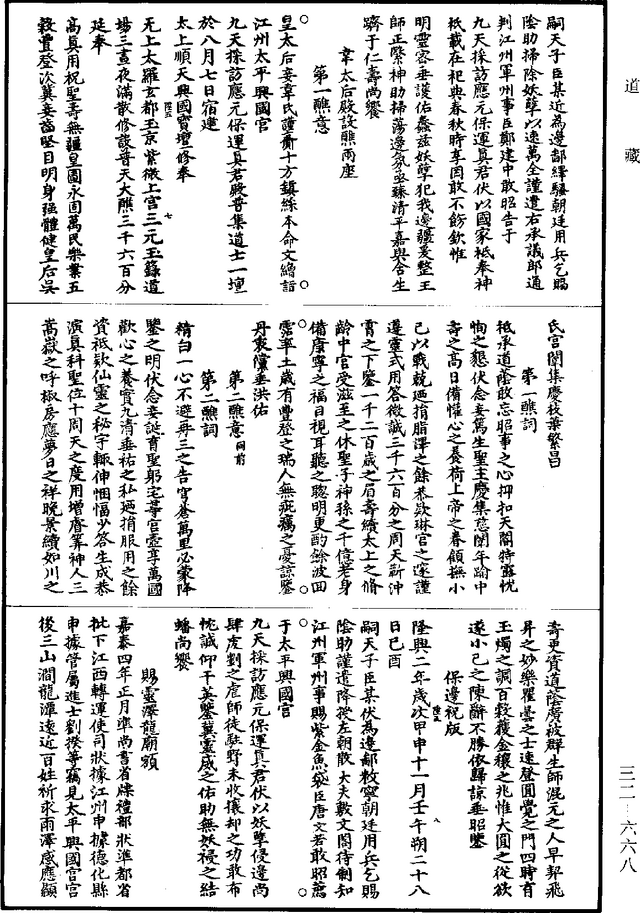 道藏
嗣天子臣某近為邊鄙繹騷朝廷用兵乞賜
陰助掃除妖孽以速萬全謹遣右承議郎通
判江州軍州事臣鄭建中敢昭告于
九天採訪應元保運真君伏以國家祗奉神
祇載在祀典春秋時享罔敢不飭欽惟
明靈容垂護佑蠢茲妖孽犯我邊疆爰整王
師正繫神助掃蕩邊氛亟臻清平嘉與含生
躋于仁壽尚饗
韋太后殿設醮兩座
第一醮意
皇太后妾韋氏謹齎十方鎮綵本命文繒詣
江州太平興國宮
九天採訪應元保運真君殿啓集道士一壇
於八月七日宿建
太上順天興國寶壇修奉
无上太羅玄都玉京紫微上宮三元玉籙道
場三晝夜滿散修設普天大醮三千六百分
延奉
高真用祝聖壽無疆皇圖永固萬民樂業五
穀豐登次冀妾齒堅目明身強體健皇后吳
氏宮闈集慶枝葉繁昌
第一醮詞
祇承道蔭敢忘昭事之心抑扣天閽特露忱
恂之懇伏念妾篤生聖主慶集慈闈年踰中
壽之高日備懽心之養荷上帝之眷顧撫小
己以戰兢廼捐脂澤之餘恭款琳宮之邃謹
遵靈式用答微誠三千六百分之周天齡沖
霄之下鑒一千二百歲之眉壽續太上之脩
齡中宮受滋至之休聖子神孫之千億若身
備康寧之福目視耳聽之聰明更酌餘波回
霑率土歲有豐登之瑞人無疵癘之憂諒鑒
丹衷儻垂洪佑
第二醮意同前
第二醮詞
精白一心不避再三之告穹蒼萬里必蒙降
鑒之明伏念妾誕育聖躬宅尊宮壼享萬國
歡心之養實九清垂祐之私廼捐服用之餘
資祇款仙靈之秘宇輒伸悃愊少答生成恭
演真科聖位十周天之度用增睿筭神人三
嵩嶽之呼椒房應夢日之祥晚景續如川之
壽更資道蔭廣被群生師混元之人早契飛
昇之妙樂瞿曇之士速登圓覺之門四時有
玉燭之調百穀獲金穰之兆惟大圓之從欲
遂小己之陳辭不勝依歸諒垂昭鑒
保邊祝版
隆興二年歲次甲申十一月壬午朔二十八
日己酉
嗣天子臣某伏為邊鄙敉寧朝廷用兵乞賜
陰助謹遣降授左朝散大夫敷文閣待制知
江州軍州事賜紫金魚袋臣唐文若敢昭薦
于太平興國宮
九天採訪應元保運真君伏以妖孽侵邊尚
肆虔劉之虐師徒駐野未收攘却之功敢布
忱誠仰干英鑒冀靈威之佑助無妖祲之結
蟠尚饗
賜靈澤龍廟額
嘉泰四年正月準尚書省牒禮部狀準都省
批下江西轉運使司狀據江州申據德化縣
申據管屬進士劉揆等竊見太平興國宮宮
後三山澗龍潭遠近百姓祈求雨澤感應顯
三二－六六八